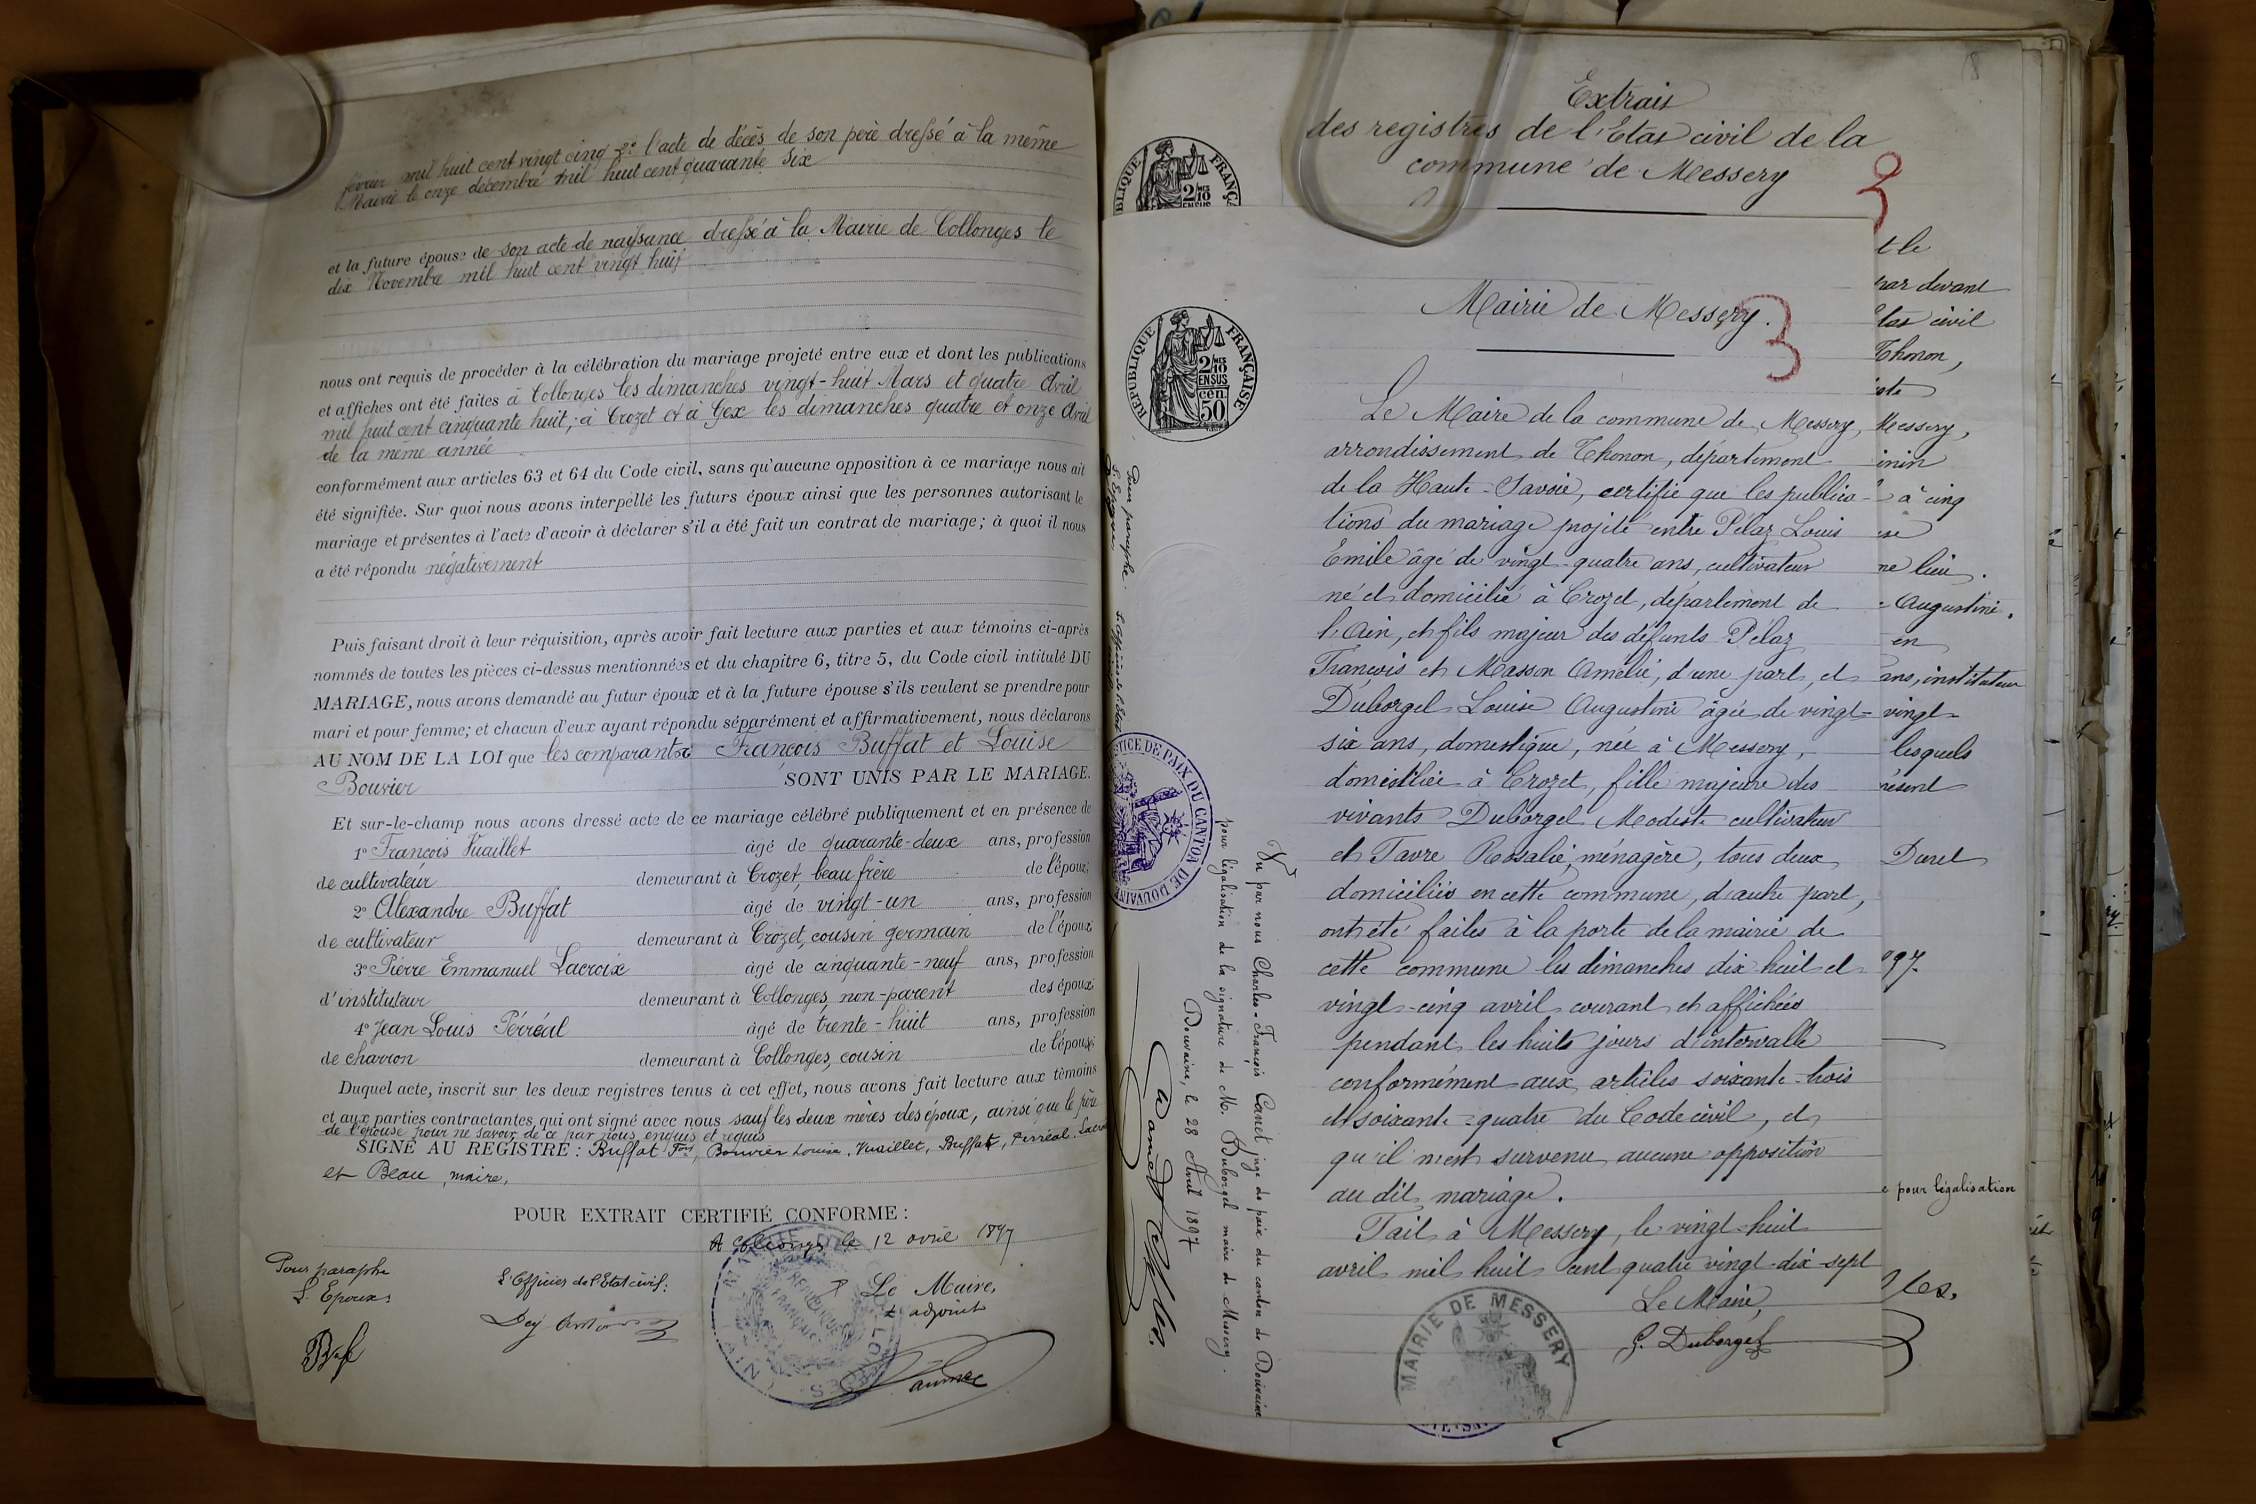 février mil huit cent vingt cinq 2º l'acte de décès de son père dressé à la même
Mairie le onze décembre mil huit cent quarante six
et la future épouse de son acte de naissance dressé à la Mairie de Collonges le
dix Novembre mil huit cent vingt huit
nous ont requis de procéder à la célébration du mariage projeté entre eux et dont les publications
et affiches ont été faites à Collonges les dimanches vingt-huit Mars et quatre Avril
mil huit cent cinquante huit, à Crozet et à Gex les dimanches quatre et onze Avril
de la même année
conformément aux articles 63 et 64 du Code civil, sans qu'aucune opposition à ce mariage nous ait
été signifiée. Sur quoi nous avons interpellé les futurs époux ainsi que les personnes autorisant le
mariage et présentes à l'acte d'avoir à déclarer s'il a été fait un contrat de mariage; à quoi il nous
a été répondu négativement
Puis faisant droit à leur réquisition, après avoir fait lecture aux parties et aux témoins ci-après
nommés de toutes les pièces ci-dessus mentionnées et du chapitre 6, titre 5, du Code civil intitulé DU
MARIAGE, nous avons demandé au futur époux et à la future épouse s'ils veulent se prendre pour
mari et pour femme; et chacun d'eux ayant répondu séparément et affirmativement, nous déclarons
AU NOM DE LA LOI que les comparants François Buffat et Louise
Bouvier SONT UNIS PAR LE MARIAGE.
Et sur-le-champ nous avons dressé acte de ce mariage célébré publiquement et en présence de
1º François Vuaillet âgé de quarante-deux ans, profession
de cultivateur demeurant à Crozet, beau frère de l'époux;
2º Alexandre Buffat âgé de vingt-un ans, profession
de cultivateur demeurant à Crozet, cousin germain de l'époux;
3º Pierre Emmanuel Lacroix âgé de cinquante-neuf ans, profession
d'instituteur demeurant à Collonges, non-parent des époux;
4º Jean Louis Perréal âgé de trente-huit ans, profession
de charron demeurant à Collonges, cousin de l'épouse;
Duquel acte, inscrit sur les deux registres tenus à cet effet, nous avons fait lecture aux témoins
et aux parties contractantes qui ont signé avec nous sauf les deux mères des époux, ainsi que le père
de l'épouse pour ne savoir de ce par nous enquis et requis
SIGNÉ AU REGISTRE : Buffat Fois, Bouvier Louise, Vuaillet, Buffat, Perréal, Lacroix
et Beau, maire.
POUR EXTRAIT CERTIFIÉ CONFORME :
A Collonges le 12 avril 1897
Pour paraphe
L'Epoux:
L'Officier de l'Etat civil:
Le Maire,
adjoint
Extrait
des registres de l'Etat civil de la
commune de Messery
3
RÉPUBLIQUE FRANÇAISE
2/10 EN SUS
RÉPUBLIQUE FRANÇAISE
2/10 EN SUS
cen. 50
Mairie de Messery.
3
Le Maire de la commune de Messery,
arrondissement de Thonon, département
de la Haute-Savoie, certifie que les publica-
tions du mariage projeté entre Pélaz Louis
Emile âgé de vingt-quatre ans, cultivateur
né et domicilié à Crozet, département de
l'Ain, et fils majeur des défunts Pélaz
François et Masson Amélie, d'une part, et
Duborgel Louise Augustine âgée de vingt-
six ans, domestique, née à Messery,
domiciliée à Crozet, fille majeure des
vivants Duborgel Modeste cultivateur
et Favre Rosalie, ménagère, tous deux
domiciliés en cette commune, d'autre part,
ont été faites à la porte de la mairie de
cette commune les dimanches dix huit et
vingt-cinq avril courant et affichées
pendant les huits jours d'intervalle
conformément aux articles soixante-trois
et soixante-quatre du Code civil, et
qu'il n'est survenu aucune opposition
au dit mariage.
Fait à Messery, le vingt-huit
avril mil huit cent quatre vingt-dix-sept
Le Maire,
G. Duborgel
MAIRIE DE MESSERY
t le
par devant
civil
Thonon,
Messery,
à cinq
lieu.
Augustine,
en
ans, instituteur
vingt-
lesquels
Duret
97.
pour légalisation
Pour paraphe.
L'Epoux,
L'officier de l'Etat civil
JUSTICE DE PAIX DU CANTON DE DOUVAINE
Vu par nous Charles-François Carret juge de paix du canton de Douvaine
pour légalisation de la signature de M. Duborgel maire de Messery.
Douvaine, le 28 Avril 1897